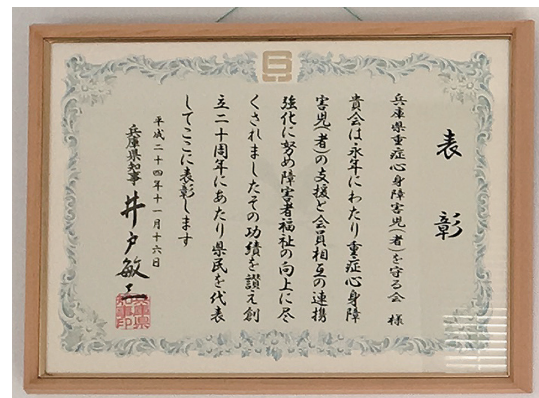 表彰
兵庫県重症心身障害児(者)を守る会 様
貴会は永年にわたり重症心身障
害児(者)の支援と会員相互の連携
強化に努め障害者福祉の向上に尽
くされましたその功績を讃え創
立二十周年にあたり県民を代表
してここに表彰します
平成二十四年十一月十六日
兵庫県知事 井戸敏三
兵庫県
知事印